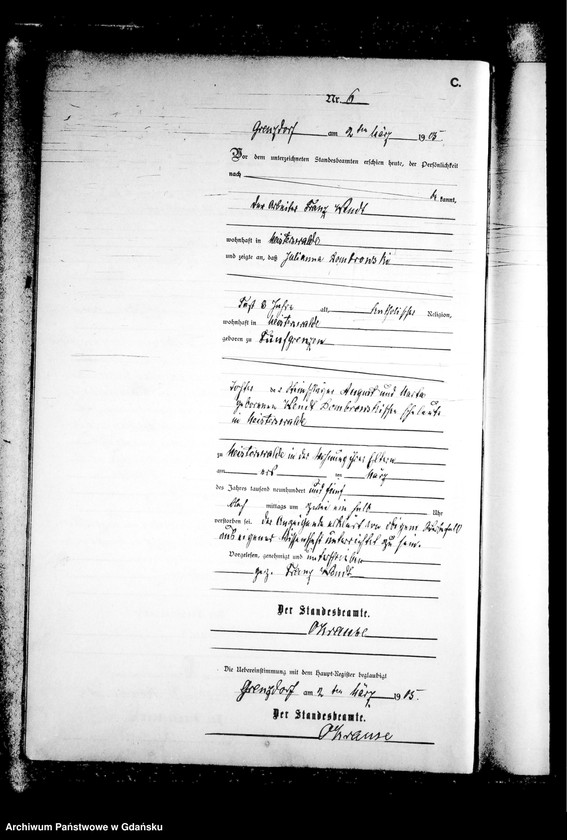 C.
Nr. 6
Grenzdorf am 2ten März 1905.
Vor dem unterzeichneten Standesbeamten erschien heute, der Persönlichkeit
nach
be kannt,
der Arbeiter Franz Wendt
wohnhaft in Meisterswalde
und zeigte an, daß Julianna Dombrowski
fast 6 Jahre alt, katholischer Religion,
wohnhaft in Meisterswalde
geboren zu Fünfgrenzen
Tochter des Steinschläger August und Marta
geborenen Wendt Dombrowskischen Eheleute
in Meisterswalde
zu Meisterswalde in der Wohnung ihrer Eltern
am ersten März
des Jahres tausend neunhundert und fünf
Nach mittags um zwei ein halb Uhr
verstorben sei. Der Anzeigende erklärt von obigem Sterbefall
aus eigener Wissenschaft unterrichtet zu sein.
Vorgelesen, genehmigt und unterschrieben
gez. Franz Wendt
Der Standesbeamte.
OKrause
Die Uebereinstimmung mit dem Haupt-Register beglaubigt
Grenzdorf am 2ten März 1905.
Der Standesbeamte.
OKrause
Archiwum Państwowe w Gdańsku